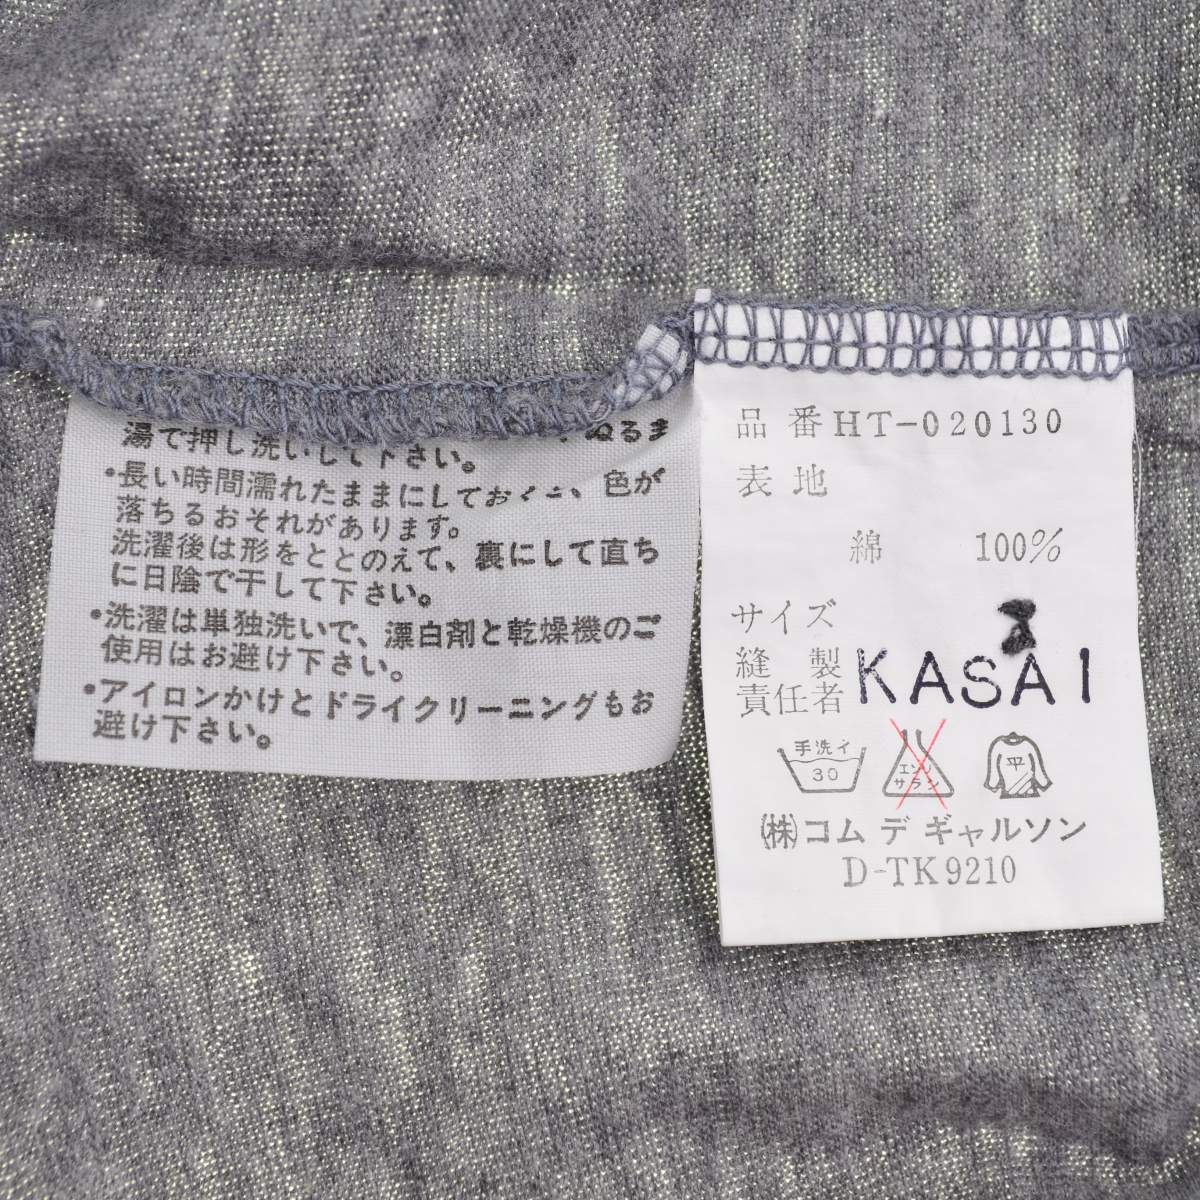 ぬるま
湯で押し洗いして下さい。
•長い時間濡れたままにしておくと、色が
落ちるおそれがあります。
洗濯後は形をととのえて、裏にして直ち
に日陰で干して下さい。
•洗濯は単独洗いで、漂白剤と乾燥機のご
使用はお避け下さい。
•アイロンかけとドライクリーニングもお
避け下さい。
品番HT-020130
表地
綿 100%
サイズ
縫製
責任者 KASAI
手洗イ
30
エンソ
サラシ
平
㈱コム デ ギャルソン
D-TK9210